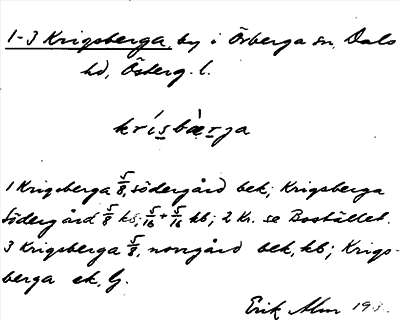 1-3 Krigsberga, by i Örberga sn, Dals
hd, Österg. l.
krísbæ̀rja
1 Krigsberga 5/8, södergård bek; Krigsberga
Södergård 5/8 hs; 5/16 + 5/16 hb; 2 Kr. se Bostället.
3 Krigsberga 5/8, norrgård bek, hb; Krigs-
berga ek, G.
Erik Alm 193